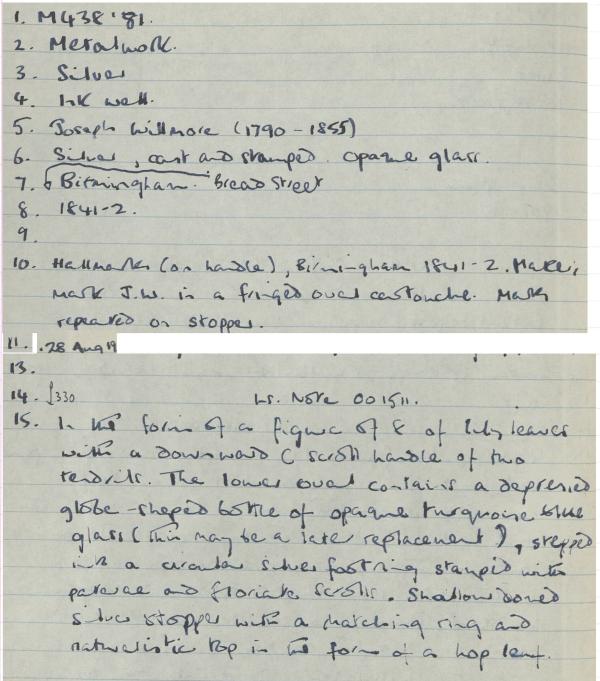 1. M438'81.
2. Metalwork.
3. Silver
4. Ink well.
5. Joseph Willmore (1790-1855)
6. Silver, cast and stamped. Opaque glass.
7. Birmingham. Bread Street
8. 1841-2.
9.
10. Hallmarks (on handle), Birmingham 1841-2. Maker's
mark J.W. in a fringed oval cartouche. Mark
repeated on stopper.
11. .28 Aug 19
13.
14. £330 Ls. Note 001511.
15. In the form of a figure of 8 of lily leaves
with a downward C scroll handle of two
tendrils. The lower oval contains a depressed
globe-shaped bottle of opaque turquoise blue
glass (this may be a later replacement), stepped
into a circular silver footring stamped with
paterae and floriate scrolls. Shallow domed
silver stopper with a matching ring and
naturalistic top in the form of a hop leaf.